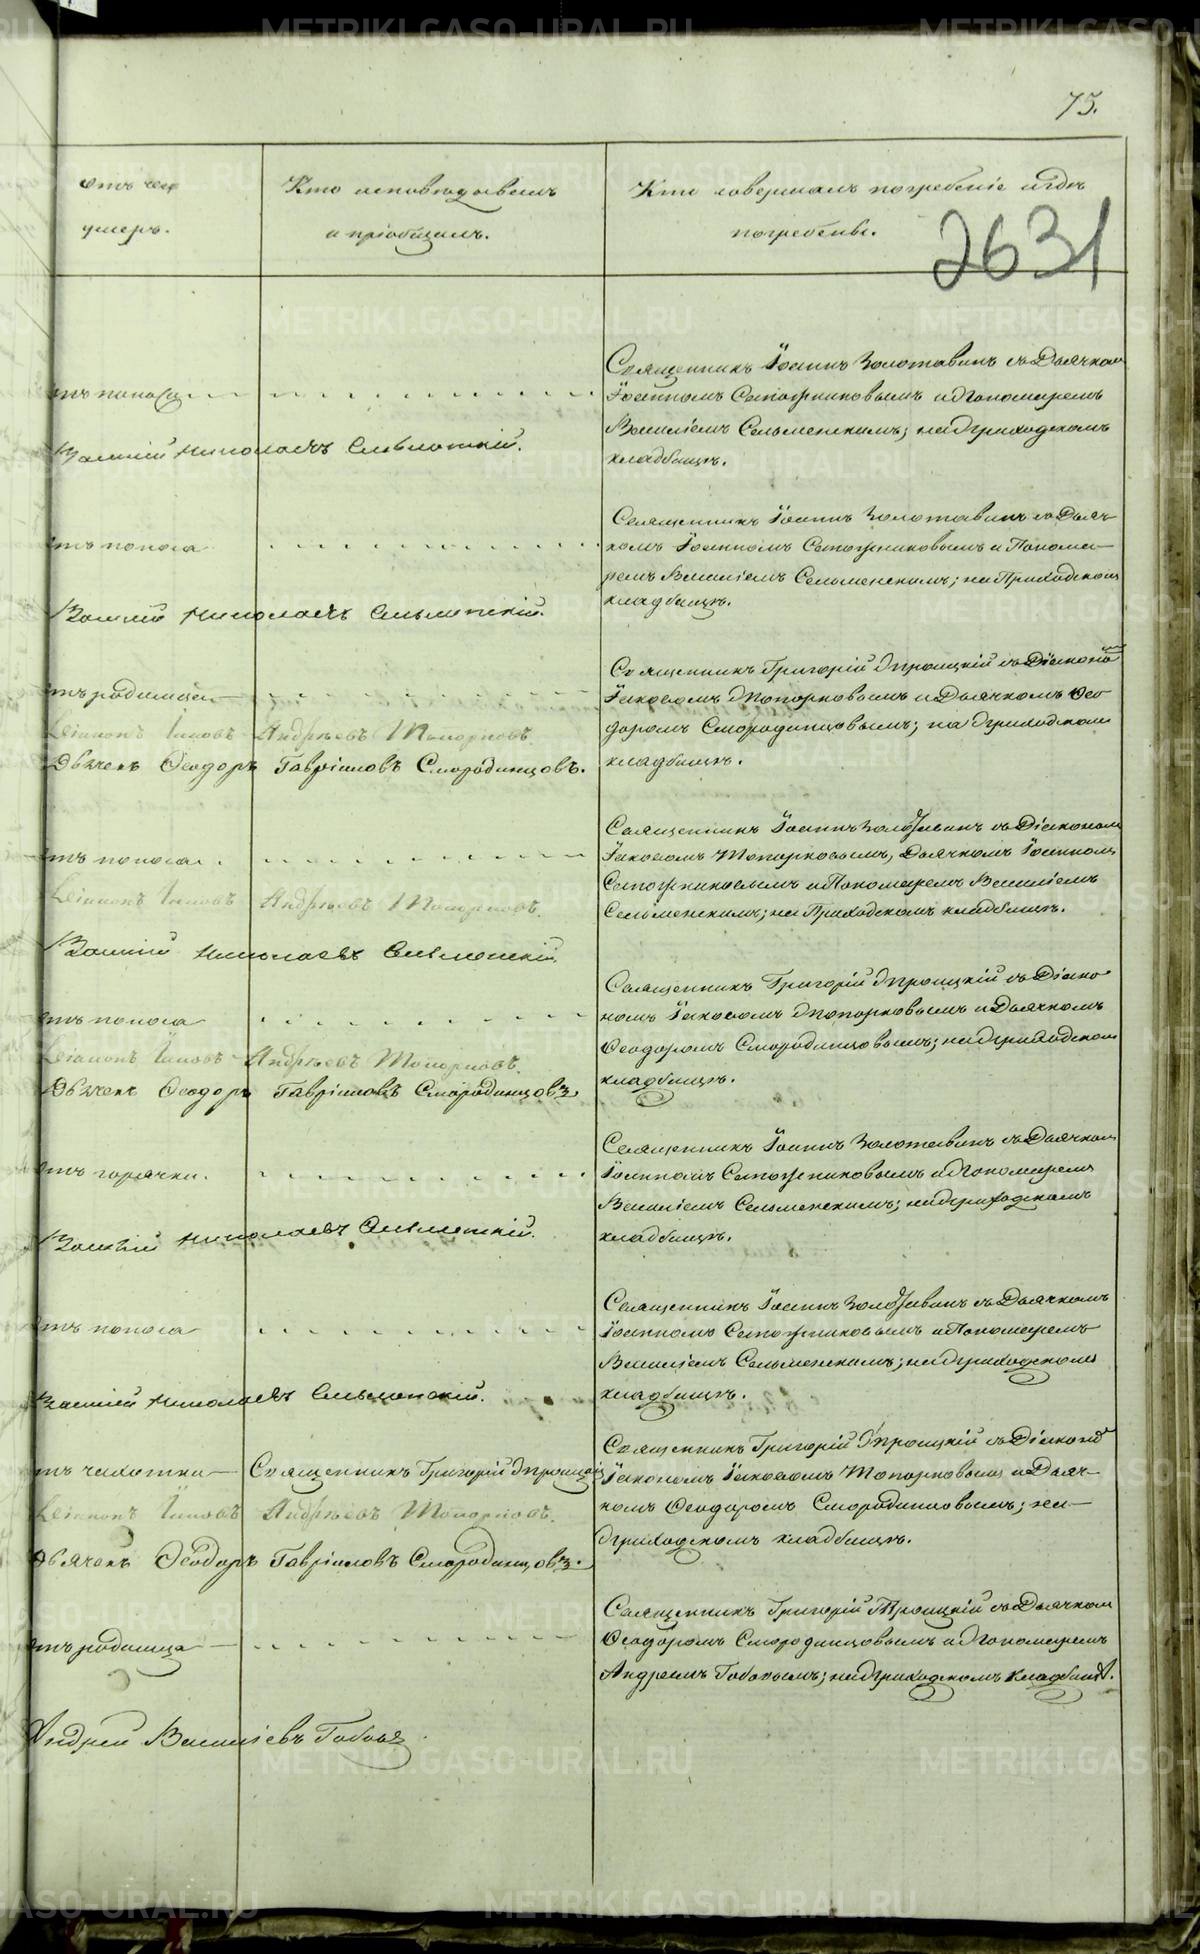 75.
отъ чего
умеръ.
Кто исповѣдывалъ
и пріобщалъ.
Кто совершалъ погребеніе и гдѣ
погребены.
2631
отъ поноса
Священникъ Іоаннъ Золотавинъ съ Дьячкомъ
Іоанномъ Сапожниковымъ и Пономаремъ
Василіемъ Сельменскимъ; на Приходскомъ
кладбищѣ.
Василій Николаевъ Сельменскій.
отъ поноса
Священникъ Іоаннъ Золотавинъ съ Дьяч-
комъ Іоанномъ Сапожниковымъ и Понома-
ремъ Василіемъ Сельменскимъ; на Приходскомъ
кладбищѣ.
Василій Николаевъ Сельменскій.
отъ родимца
Священникъ Григорій Троицкій съ Діакономъ
Іаковомъ Топорковымъ и Дьячкомъ Ѳео-
доромъ Смородинцовымъ; на Приходскомъ
кладбищѣ.
Діаконъ Іаковъ Андреевъ Топорковъ
Дьячекъ Ѳеодоръ Гавріиловъ Смородинцовъ.
отъ поноса
Священникъ Іоаннъ Золотавинъ съ Діакономъ
Іаковомъ Топорковымъ, Дьячкомъ Іоанномъ
Сапожниковымъ и Пономаремъ Василіемъ
Сельменскимъ; на Приходскомъ кладбищѣ.
Діаконъ Іаковъ Андреевъ Топорковъ.
Василій Николаевъ Сельменскій.
отъ поноса
Священникъ Григорій Троицкій съ Діако-
номъ Іаковомъ Топорковымъ и Дьячкомъ
Ѳеодоромъ Смородинцовымъ; на Приходскомъ
кладбищѣ.
Діаконъ Іаковъ Андреевъ Топорковъ.
Дьячекъ Ѳеодоръ Гавріиловъ Смородинцовъ
отъ горячки.
Священникъ Іоаннъ Золотавинъ съ Дьячкомъ
Іоанномъ Сапожниковымъ и Пономаремъ
Василіемъ Сельменскимъ; на Приходскомъ
кладбищѣ.
Василій Николаевъ Сельменскій.
отъ поноса
Священникъ Іоаннъ Золотавинъ съ Дьячкомъ
Іоанномъ Сапожниковымъ и Пономаремъ
Василіемъ Сельменскимъ; на Приходскомъ
кладбищѣ.
Василій Николаевъ Сельменскій.
отъ чахотки
Священникъ Григорій Троицкій
Священникъ Григорій Троицкій съ Діакономъ
Іаковомъ Топорковымъ и Дьяч-
комъ Ѳеодоромъ Смородинцовымъ; на
Приходскомъ кладбищѣ.
Діаконъ Іаковъ Андреевъ Топорковъ.
Дьячекъ Ѳеодоръ Гавріиловъ Смородинцовъ.
отъ родимца
Священникъ Григорій Троицкій съ Дьячкомъ
Ѳеодоромъ Смородинцовымъ и Пономаремъ
Андреемъ Бобовымъ; на Приходскомъ кладбищѣ.
Андрей Васильевъ